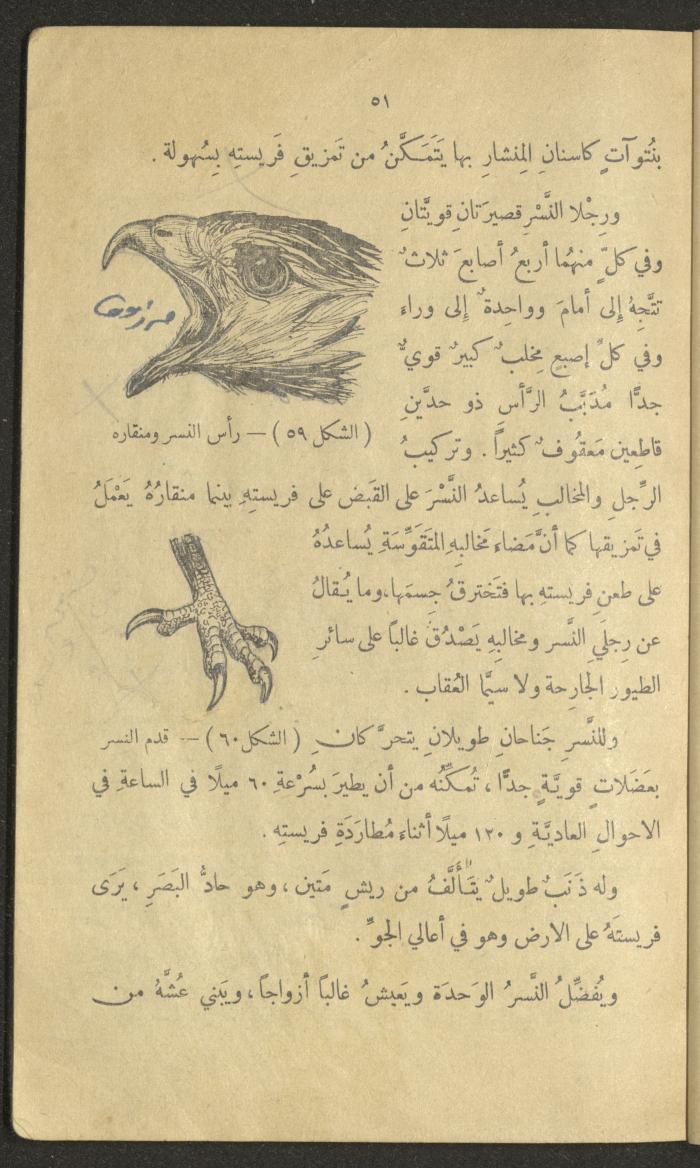 ٥١
بنُتوآتٍ كاسنانِ المِنشارِ بها يَتَمَكَّنُ من تَمزيقِ فَريستِه بِسُهولة .
ورِجْلا النَّسْرِ قصيرَتانِ قويَّتانِ
وفي كلٍّ منهُما أربعُ أصابعَ ثلاثٌ
تتَّجِهُ إلى أمامَ وواحِدةٌ إلى وراء
وفي كلِّ إصبعٍ مِخلبٌ كبيرٌ قويٌّ
جدًّا مُدَبَّبُ الرَّأسِ ذو حدَّينِ
قاطِعين مَعقُوفٌ كثيراً . وتركيبُ
( الشكل ٥٩ ) — رأس النسر ومنقاره
الرِّجلِ والمخالبِ يُساعدُ النَّسْرَ على القَبَض على فريستهِ بينما منقارُهُ يَعْمَلُ
في تَمزيقها كما أنَّ مَضاءَ مَخالبهِ المتَقَوِّسَةِ يُساعدُهُ
على طعنِ فريستهِ بها فتَخترقُ جِسمَها،وما يُقالُ
عن رِجلَيِ النَّسر ومخالبِهِ يَصْدُقُ غالباً على سائرِ
الطيور الجارِحة ولا سيَّما العُقاب .
وللنَّسرِ جَناحانِ طويلانِ يتحرَّ كانِ ( الشكل ٦٠ ) — قدم النسر
بعَضَلاتٍ قويَّةٍ جدًّا ، تُمكِّنُه من أن يطيرَ بسُرْعةِ ٦٠ ميلًا في الساعةِ في
الاحوالِ العاديَّةِ و ١٢٠ ميلًا أثناءَ مُطارَدَةِ فريستِه .
وله ذَنَبٌ طويلٌ يتَألَّفُ من ريشٍ مَتين ، وهو حادُّ البَصَرِ ، يَرَى
فريستَهُ على الارض وهو في أعالي الجوِّ .
ويُفضِّلُ النَّسرُ الوَحدَة ويَعيشُ غالباً أزواجاً ، ويَبني عُشَّهُ من